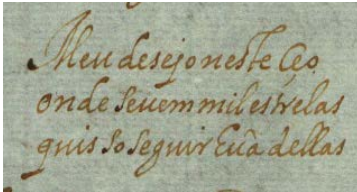 Meu desejo neste Ceo
onde se vem mil estrelas
quis so seguir hũa dellas